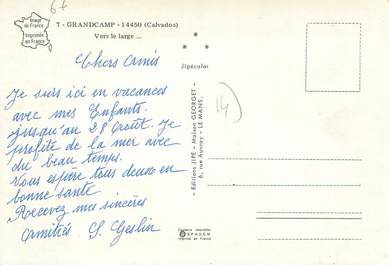 67
Image
de France
Imprimée
en France
7 - GRANDCAMP - 14450 (Calvados)
Vers le large ...
Jipécolor
Chers Amis
Je suis ici en vacances
avec mes Enfants.
jusqu'au 28 Août. Je
profite de la mer avec
du beau temps.
Vous espère tous deux en
bonne santé
Recevez mes sincères
amitiés S. Geslin
- Editions JIPE - Maison GEORGET -
6, rue Auvray - LE MANS.
14)
Couleurs naturelles
SPADEM
Imprimé en France